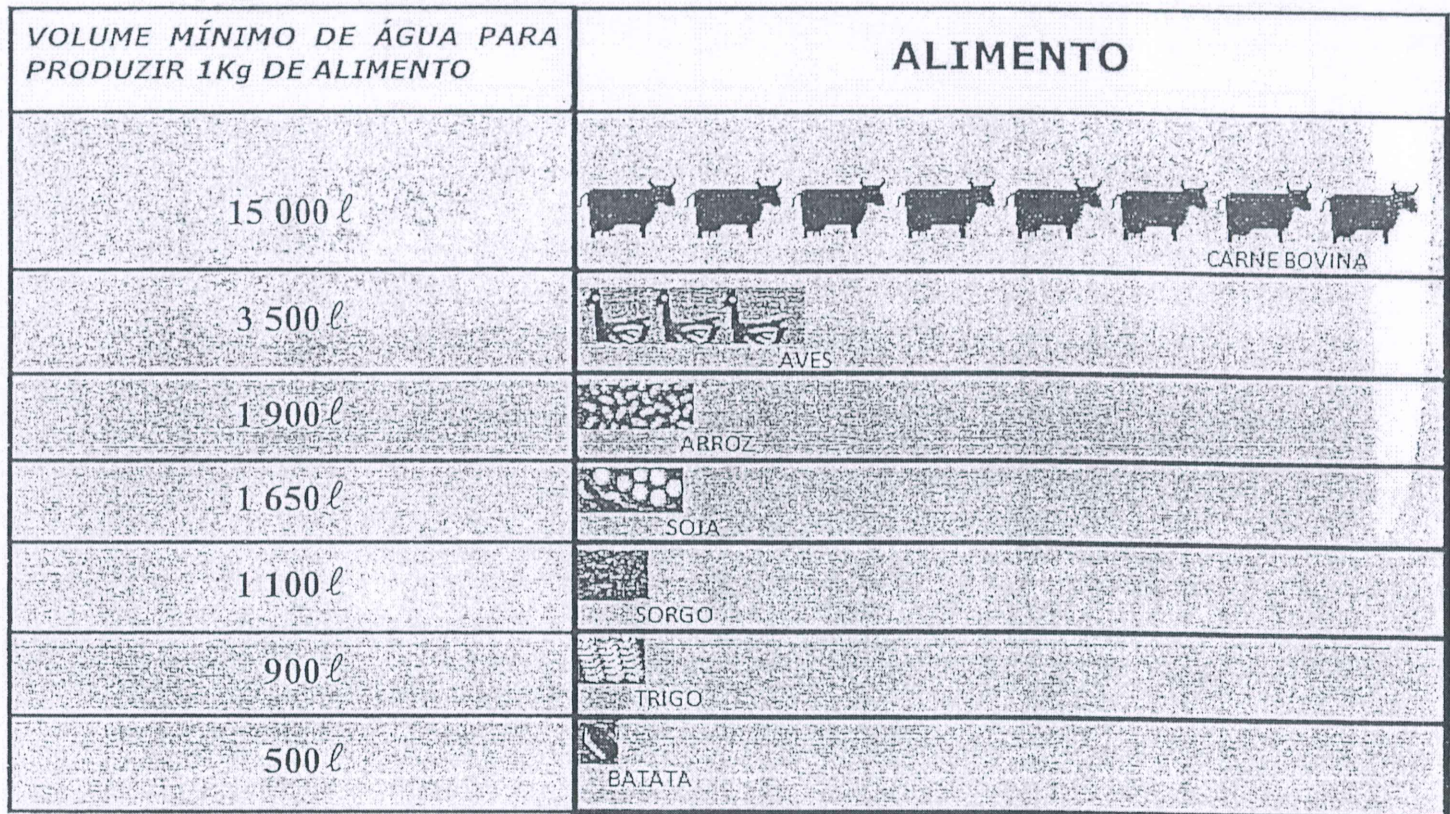 VOLUME MÍNIMO DE ÁGUA PARA
PRODUZIR 1Kg DE ALIMENTO
ALIMENTO
15 000 ℓ
CARNE BOVINA
3 500 ℓ
AVES
1 900 ℓ
ARROZ
1 650 ℓ
SOJA
1 100 ℓ
SORGO
900 ℓ
TRIGO
500 ℓ
BATATA